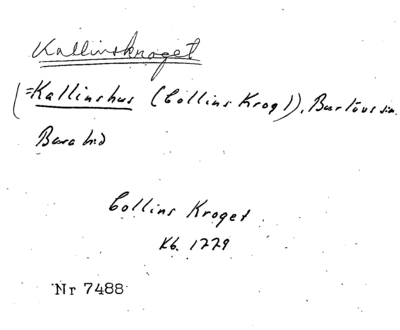 Kallinskroget
(=Kallinshus (Collins Krog!), Burlövs sn.
Bara hd
Collins Kroget
Kb. 1779
Nr 7488